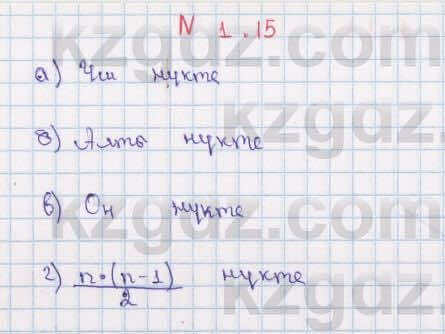 N 1.15
а) Үш нүкте
б) Алты нүкте
в) Он нүкте
г) n·(n-1)/2 нүкте
kzgdz.com
kzgdz.com
kzgdz.com
kzgdz.com